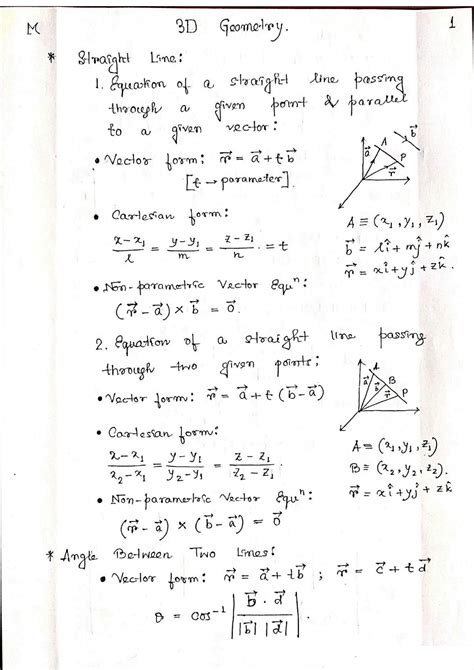 M 3D Geometry. 1
* Straight Line:
1. Equation of a straight line passing
through a given point & parallel
to a given vector:
• Vector form: r⃗ = a⃗ + t b⃗
[t → parameter].
b⃗
a⃗ A P r⃗
• Cartesian form:
(x-x₁)/l = (y-y₁)/m = (z-z₁)/n = t
A ≡ (x₁, y₁, z₁)
b⃗ = lî + mĵ + nk̂
r⃗ = xî + yĵ + zk̂.
• Non-parametric Vector Equⁿ:
(r⃗ - a⃗) × b⃗ = 0⃗.
2. Equation of a straight line passing
through two given points:
• Vector form: r⃗ = a⃗ + t (b⃗ - a⃗)
A B P
a⃗ b⃗ r⃗
• Cartesian form:
(x-x₁)/(x₂-x₁) = (y-y₁)/(y₂-y₁) = (z-z₁)/(z₂-z₁)
A ≡ (x₁, y₁, z₁)
B ≡ (x₂, y₂, z₂).
r⃗ = xî + yĵ + zk̂
• Non-parametric Vector Equⁿ:
(r⃗ - a⃗) × (b⃗ - a⃗) = 0⃗
* Angle Between Two Lines:
• Vector form: r⃗ = a⃗ + t b⃗ ; r⃗ = c⃗ + t d⃗
θ = cos⁻¹ | b⃗ · d⃗ / |b⃗| |d⃗| |.